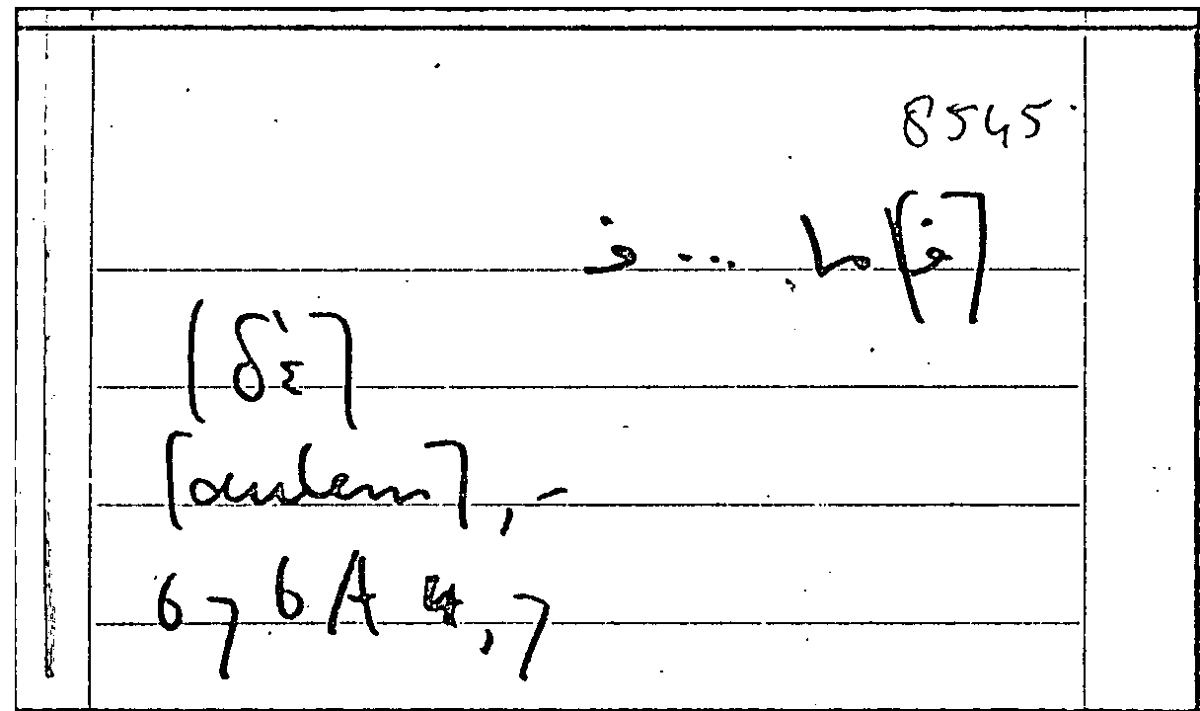 8545
[ف]اما ... ف
[δὲ]
[autem], -
676A4,7